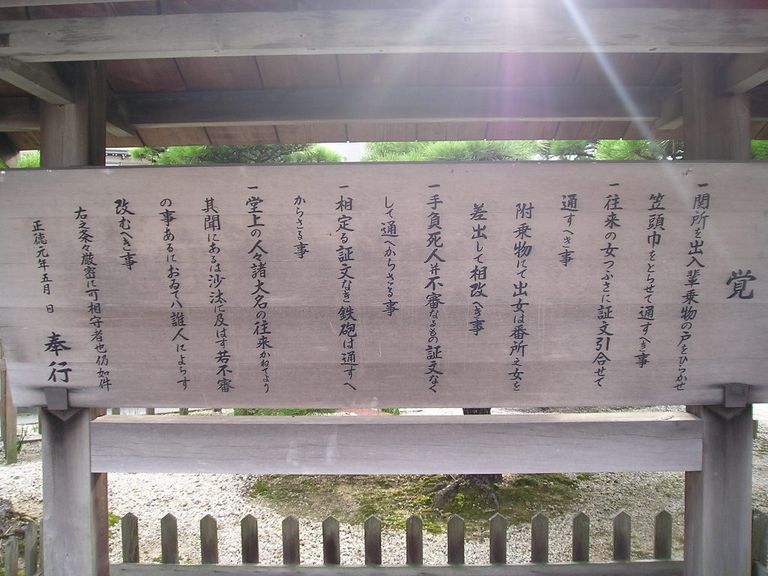 覚
一関所を出入輩乗物の戸をひらかせ
笠頭巾をとらせて通すへき事
一往来の女つふさに証文引合せて
通すへき事
附乗物にて出女は番所之女を
差出して相改へき事
一手負死人并不審なるもの証文なく
して通へからさる事
一相定る証文なき鉄砲は通すへ
からさる事
一堂上の人々諸大名の往来かねてより
其聞にあるは沙汰に及はす若不審
の事あるにおゐてハ誰人によらす
改むへき事
右之条々厳密に可相守者也仍如件
正徳元年五月 日
奉行